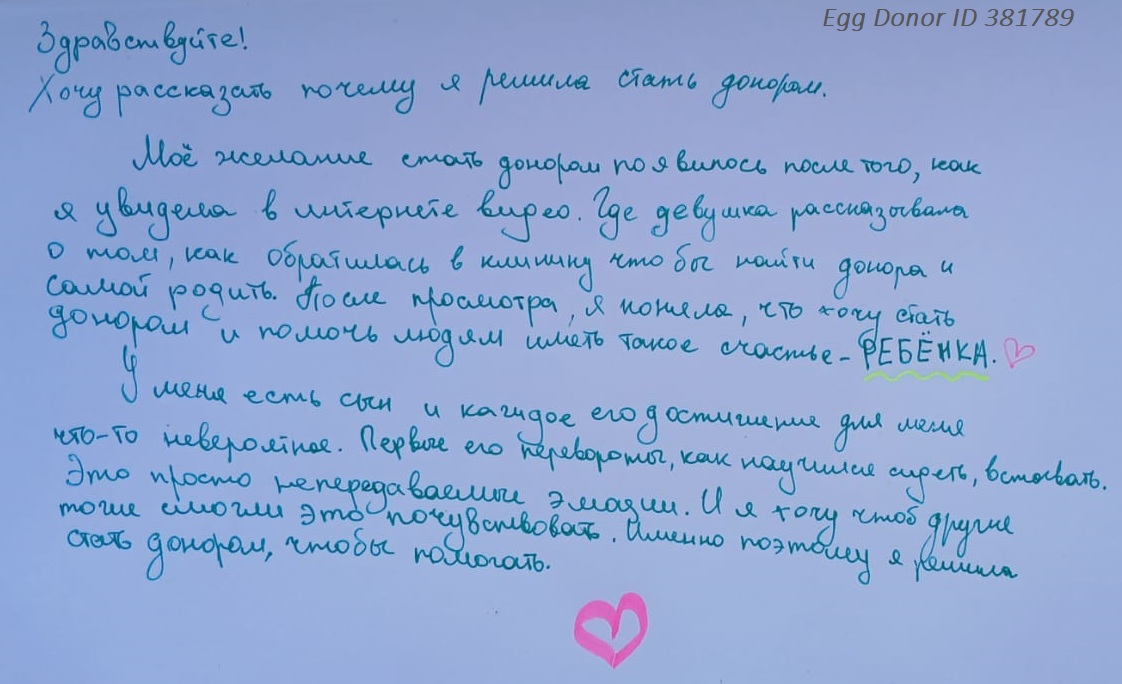 Egg Donor ID 381789
Здравствуйте!
Хочу рассказать почему я решила стать донором.
Моё желание стать донором появилось после того, как
я увидела в интернете видео. Где девушка рассказывала
о том, как обратилась в клинику что бы найти донора и
самой родить. После просмотра, я поняла, что хочу стать
донором и помочь людям иметь такое счастье - РЕБЁНКА.
У меня есть сын и каждое его достижение для меня
что-то невероятное. Первые его перевороты, как научился сидеть, вставать.
Это просто непередаваемые эмоции. И я хочу чтоб другие
тоже смогли это почувствовать. Именно поэтому я решила
стать донором, чтобы помогать.